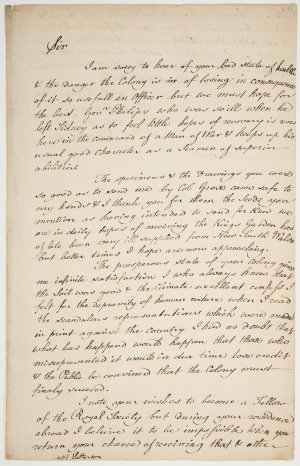 Sir
I am sorry to hear of your bad state of health
& the danger the Colony is in of losing in consequence
of it so usefull an Officer but we must hope for
the best, Govr Philips who was so ill when he
left Sidney as to feel little hopes of recovery is now
here in the command of a Man of War & keeps up his
usual good character as a Seaman of superior
abilities
The specimens & the Drawings you were
so good as to send me by Col Grose came safe to
my hands & I thank you for them the Seeds you
mention as having intended to send for Kew we
are in daily hopes of receiving the Kings Garden has
of late been very ill supplied from New South Wales
but better times I hope are now approaching.
The prosperous state of your Colony gives
me infinite satisfaction I who always knew that
the Soil was good & the Climate excellent confess I
felt for the depravity of human nature when I read
the scandalous representations which were made
in print against the Country I had no doubt that
what has happend would happen that those who
misrepresented it would in due time lose credit
& the Public be convinced that the Colony must
finaly succeed.
I note your wishes to become a Fellow
of the Royal Society but during your residence
abroad I beleive it to be impossible when you
return your chance of receiving that & other
Patterson